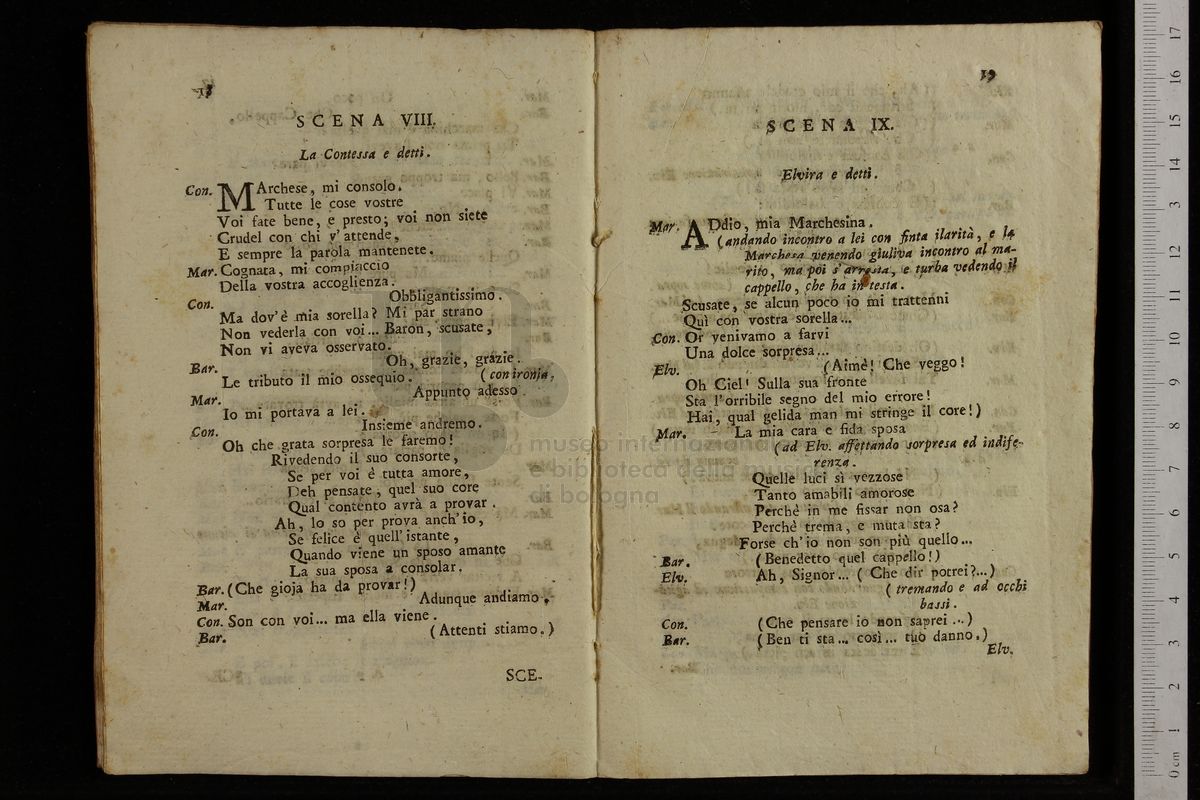 18
SCENA VIII.
La Contessa e detti.
Con. MArchese, mi consolo.
Tutte le cose vostre
Voi fate bene, e presto; voi non siete
Crudel con chi v'attende,
E sempre la parola mantenete.
Mar. Cognata, mi compiaccio
Della vostra accoglienza.
Con. Obbligantissimo.
Ma dov'è mia sorella? Mi par strano
Non vederla con voi... Baron, scusate,
Non vi aveva osservato.
Bar. Oh, grazie, grazie.
Le tributo il mio ossequio. (con ironia.
Mar. Appunto adesso
Io mi portava a lei.
Con. Insieme andremo.
Oh che grata sorpresa le faremo!
Rivedendo il suo consorte,
Se per voi è tutta amore,
Deh pensate, quel suo core
Qual contento avrà a provar.
Ah, lo so per prova anch'io,
Se felice è quell'istante,
Quando viene un sposo amante
La sua sposa a consolar.
Bar. (Che gioja ha da provar!)
Mar. Adunque andiamo.
Con. Son con voi... ma ella viene.
Bar. (Attenti stiamo.)
SCE-
19
SCENA IX.
Elvira e detti.
Mar. ADdio, mia Marchesina.
(andando incontro a lei con finta ilarità, e la
Marchesa venendo giuliva incontro al ma-
rito, ma poi s'arresta, e turba vedendo il
cappello, che ha in testa.
Scusate, se alcun poco io mi trattenni
Quì con vostra sorella...
Con. Or venivamo a farvi
Una dolce sorpresa...
Elv. (Aimè! Che veggo!
Oh Ciel! Sulla sua fronte
Sta l'orribile segno del mio errore!
Hai, qual gelida man mi stringe il core!)
Mar. La mia cara e fida sposa
(ad Elv. affettando sorpresa ed indife-
renza.
Quelle luci sì vezzose
Tanto amabili amorose
Perchè in me fissar non osa?
Perchè trema, e muta sta?
Forse ch'io non son più quello...
Bar. (Benedetto quel cappello!)
Elv. Ah, Signor... (Che dir potrei?...)
(tremando e ad occhi
bassi.
Con. (Che pensare io non saprei...)
Bar. (Ben ti sta... così... tuo danno.)
Elv.
museo internazionale
e biblioteca della musica
di bologna
0 cm 1 2 3 4 5 6 7 8 9 10 11 12 13 14 15 16 17